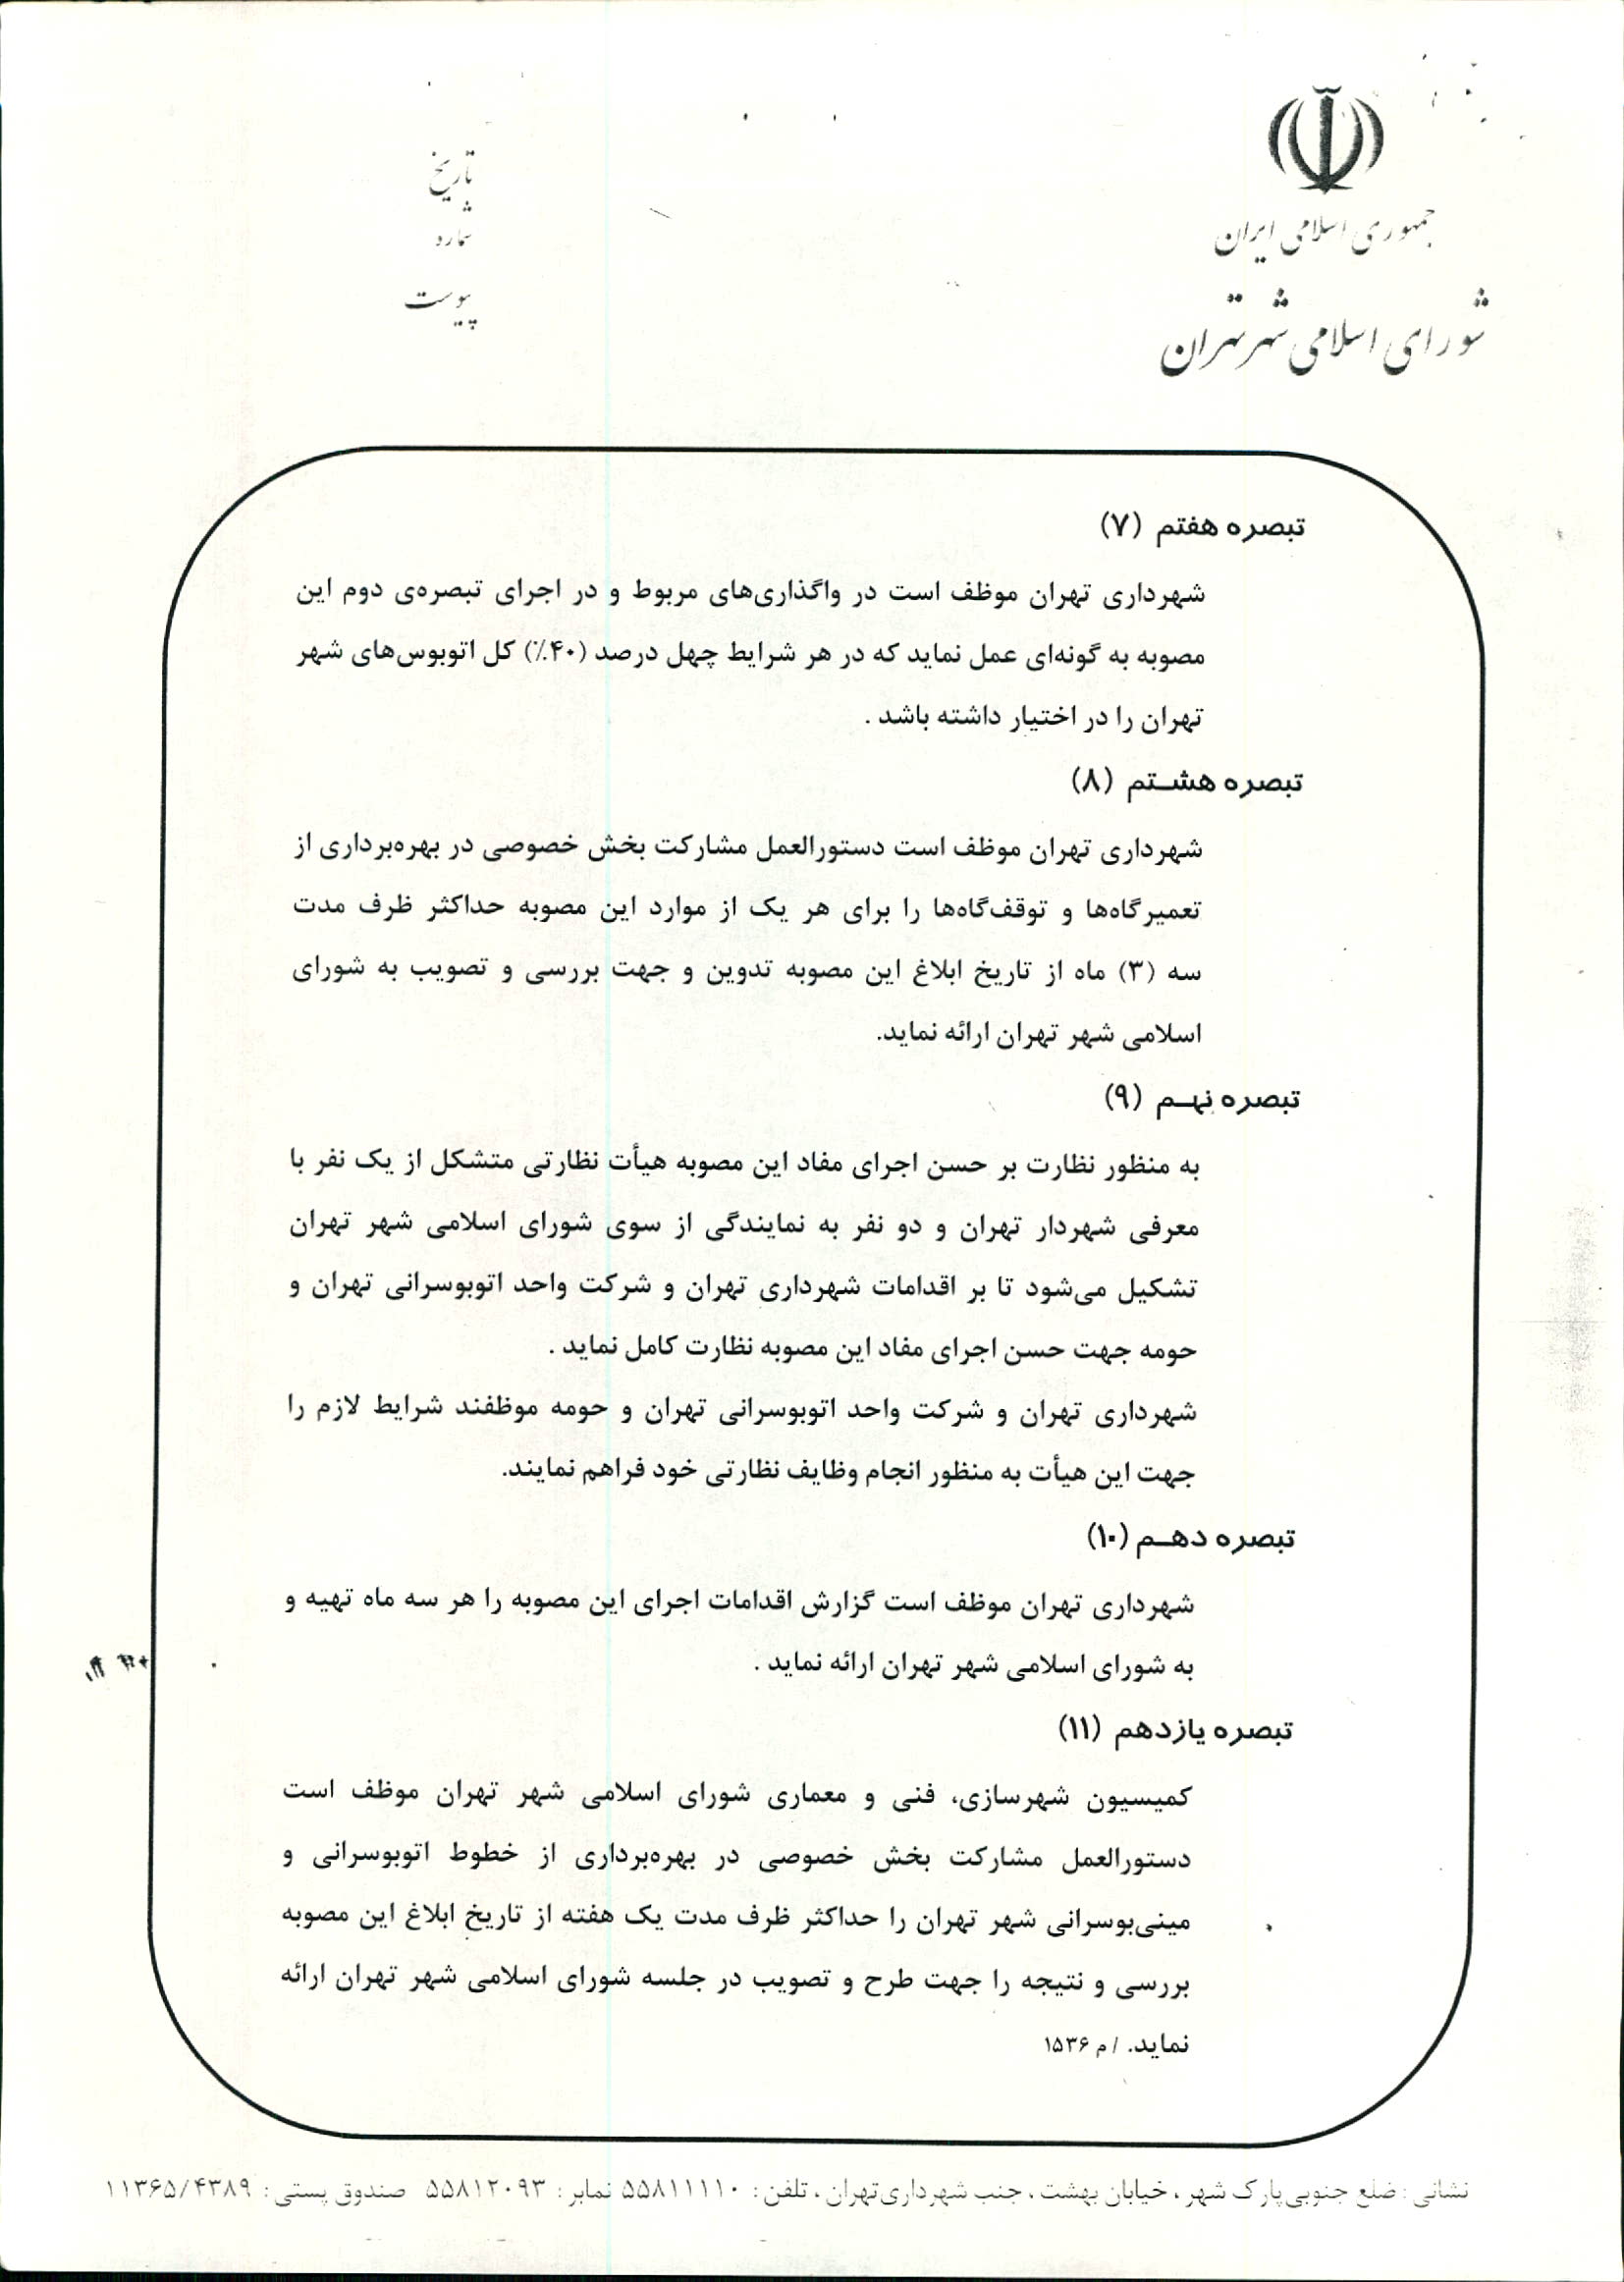 جمهوری اسلامی ایران
شورای اسلامی شهر تهران
تاریخ
شماره
پیوست
تبصره هفتم (۷)
شهرداری تهران موظف است در واگذاری‌های مربوط و در اجرای تبصره‌ی دوم این
مصوبه به گونه‌ای عمل نماید که در هر شرایط چهل درصد (۴۰٪) کل اتوبوس‌های شهر
تهران را در اختیار داشته باشد .
تبصره هشـتم (۸)
شهرداری تهران موظف است دستورالعمل مشارکت بخش خصوصی در بهره‌برداری از
تعمیرگاه‌ها و توقف‌گاه‌ها را برای هر یک از موارد این مصوبه حداکثر ظرف مدت
سه (۳) ماه از تاریخ ابلاغ این مصوبه تدوین و جهت بررسی و تصویب به شورای
اسلامی شهر تهران ارائه نماید.
تبصره نهـم (۹)
به منظور نظارت بر حسن اجرای مفاد این مصوبه هیأت نظارتی متشکل از یک نفر با
معرفی شهردار تهران و دو نفر به نمایندگی از سوی شورای اسلامی شهر تهران
تشکیل می‌شود تا بر اقدامات شهرداری تهران و شرکت واحد اتوبوسرانی تهران و
حومه جهت حسن اجرای مفاد این مصوبه نظارت کامل نماید .
شهرداری تهران و شرکت واحد اتوبوسرانی تهران و حومه موظفند شرایط لازم را
جهت این هیأت به منظور انجام وظایف نظارتی خود فراهم نمایند.
تبصره دهـم (۱۰)
شهرداری تهران موظف است گزارش اقدامات اجرای این مصوبه را هر سه ماه تهیه و
به شورای اسلامی شهر تهران ارائه نماید .
تبصره یازدهم (۱۱)
کمیسیون شهرسازی، فنی و معماری شورای اسلامی شهر تهران موظف است
دستورالعمل مشارکت بخش خصوصی در بهره‌برداری از خطوط اتوبوسرانی و
مینی‌بوسرانی شهر تهران را حداکثر ظرف مدت یک هفته از تاریخ ابلاغ این مصوبه
بررسی و نتیجه را جهت طرح و تصویب در جلسه شورای اسلامی شهر تهران ارائه
نماید. / م ۱۵۳۶
نشانی : ضلع جنوبی پارک شهر ، خیابان بهشت ، جنب شهرداری تهران ، تلفن : ۵۵۸۱۱۱۱۰ نمابر : ۵۵۸۱۲۰۹۳ صندوق پستی : ۱۱۳۶۵/۴۳۸۹